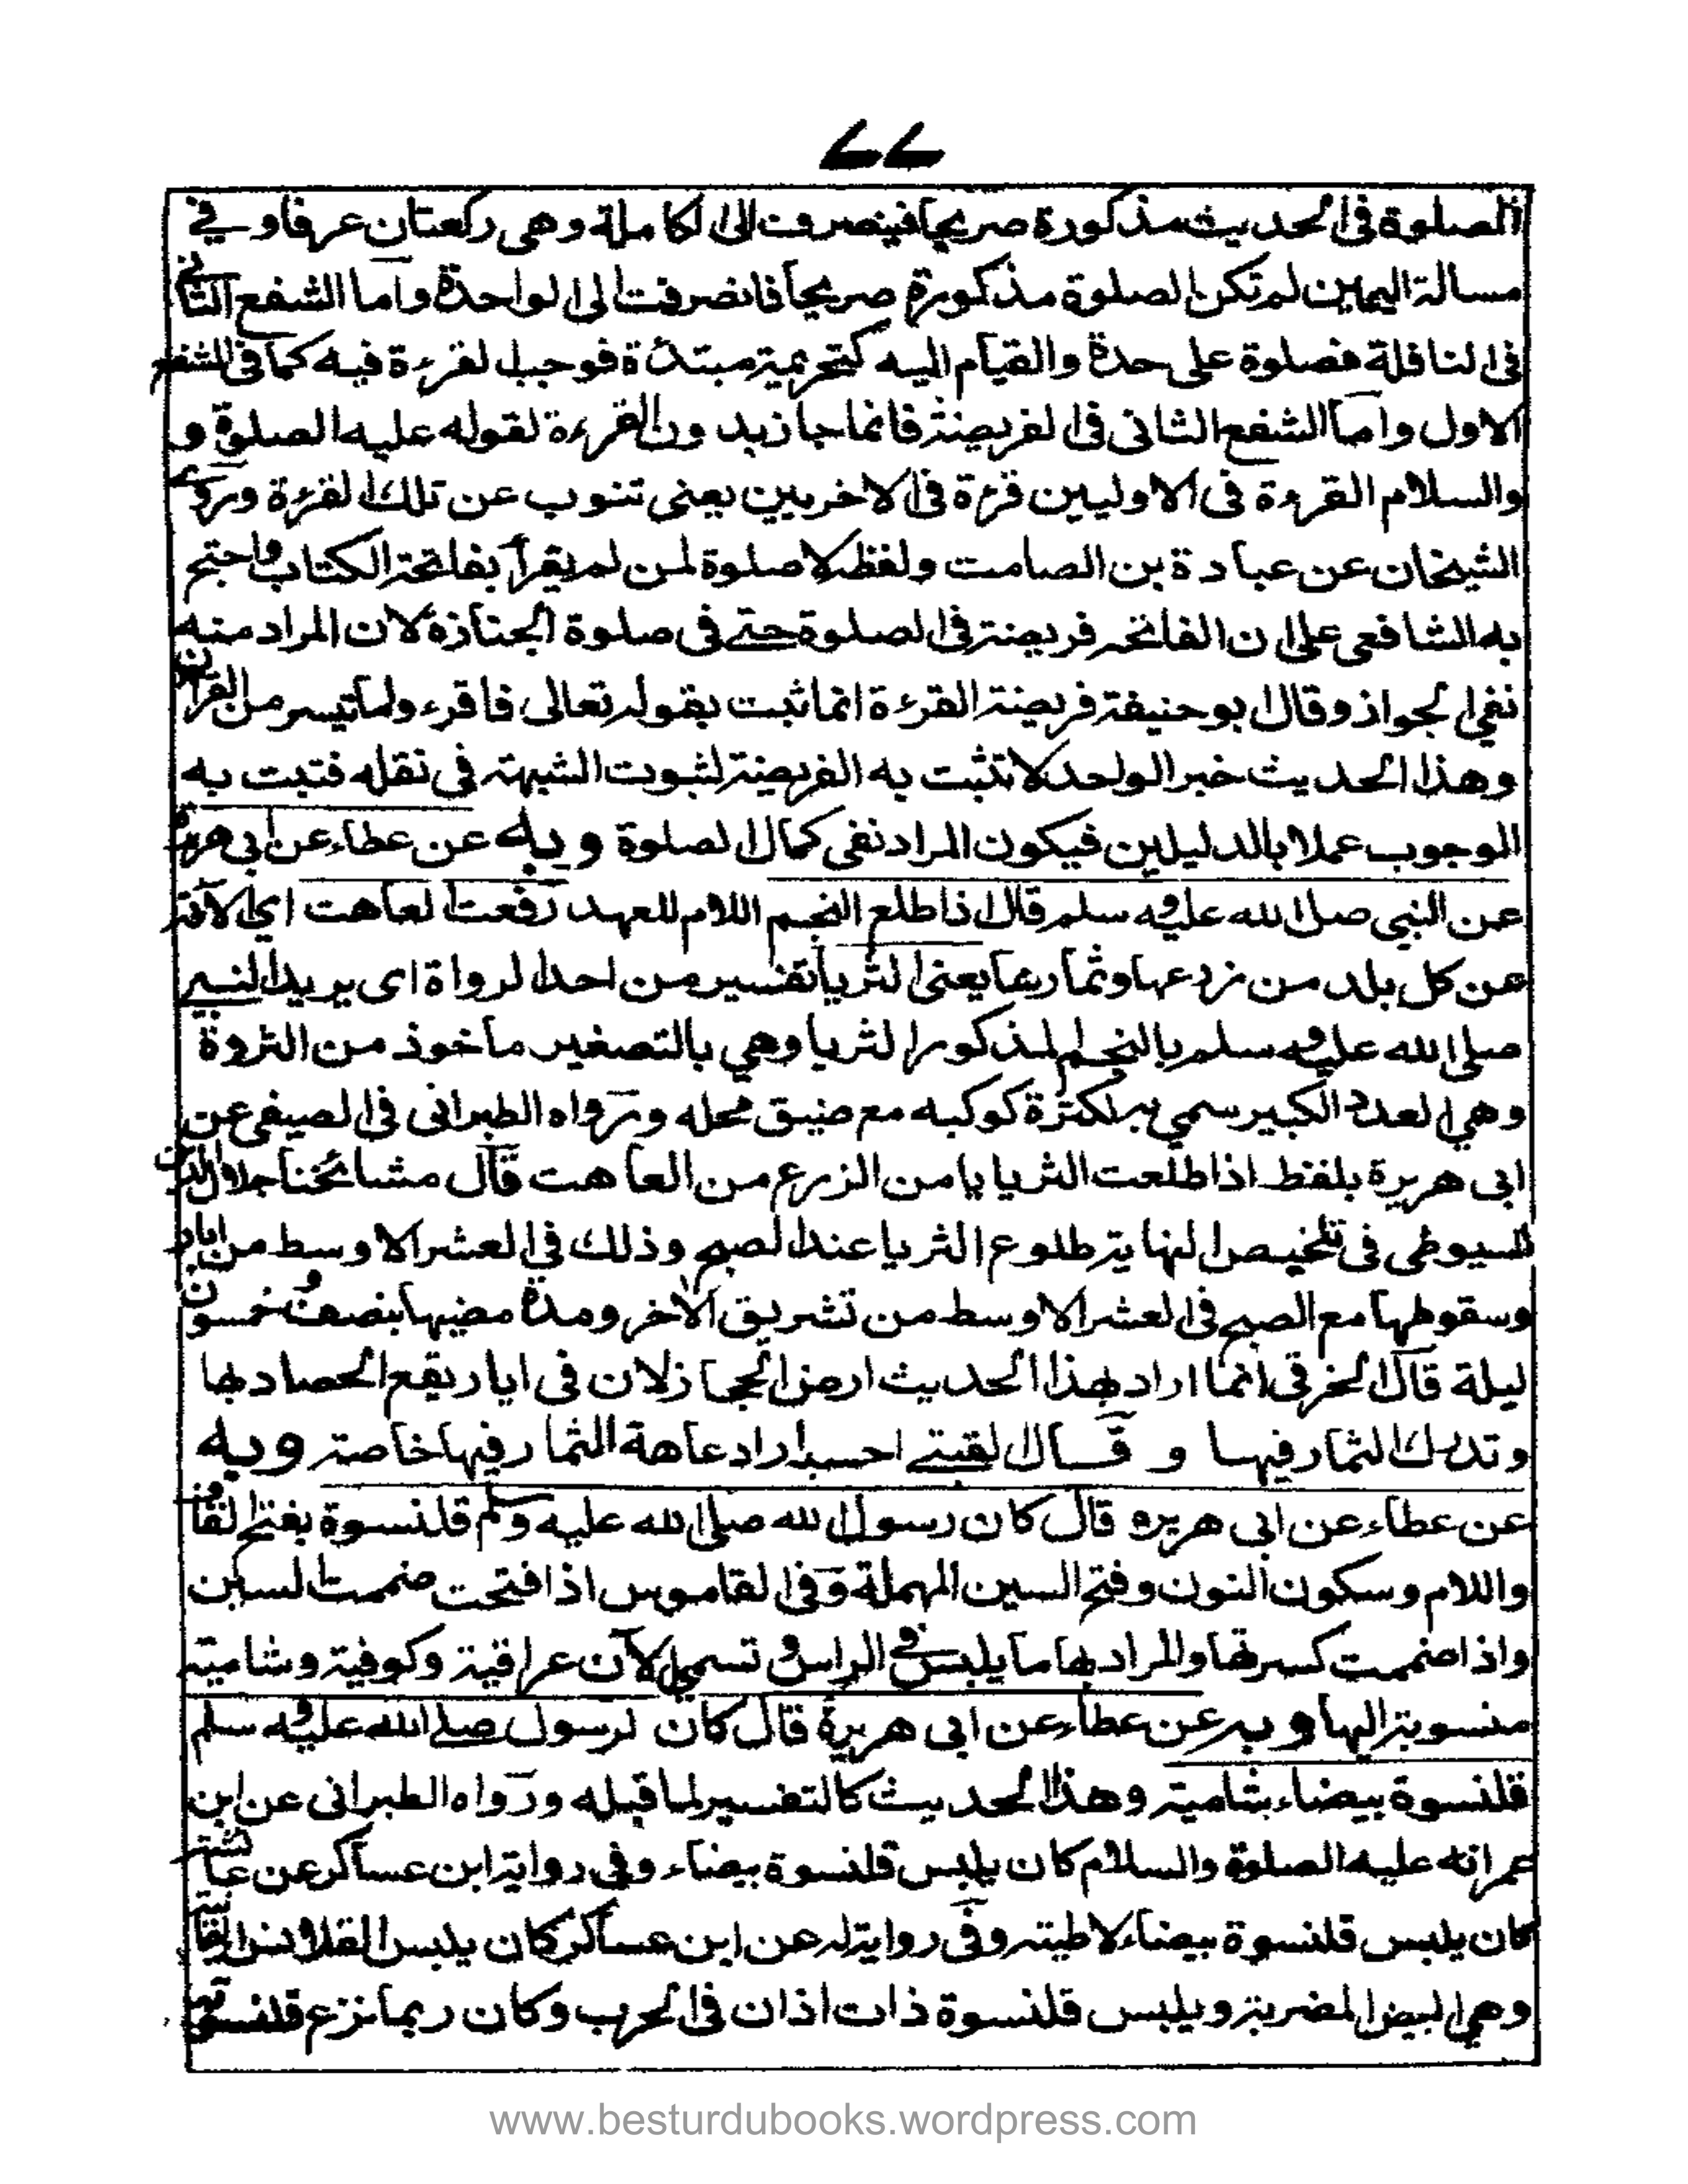 ۷۷
الصلوة فى الحديث مذكورة صريحا فينصرف الى الكاملة وهى ركعتان عرفا و في
مسالة اليمين لم تكن الصلوة مذكورة صريحا فانصرفت الى الواحدة واما الشفع الثانى
فى النافلة فصلوة على حدة والقيام اليه كتحريمة مبتدئة فوجب القرءة فيه كما فى الشفع
الاول واما الشفع الثانى فى الفريضة فانما جاز بدون القرءة لقوله عليه الصلوة و
والسلام القرءة فى الاوليين قرءة فى الاخريين يعنى تنوب عن تلك القرءة وروى
الشيخان عن عبادة بن الصامت ولفظه لا صلوة لمن لم يقرأ بفاتحة الكتاب واحتج
به الشافعى على ان الفاتحه فريضة فى الصلوة حتى فى صلوة الجنازة لان المراد منه
نفي الجواز وقال ابو حنيفة فريضة القرءة انما ثبت بقوله تعالى فاقرءوا ما تيسر من القران
وهذا الحديث خبر الواحد لا تثبت به الفريضة لثبوت الشبهة فى نقله فتبت به
الوجوب عملا بالدليلين فيكون المراد نفى كمال الصلوة و به عن عطاء عن ابى هريرة
عن النبي صلى الله عليه وسلم قال اذا طلع النجم اللام للعهد رفعت العاهت اى الآفة
عن كل بلد من زرعها وثمارها يعنى الثريا تفسير من احد الرواة اى يريد النبي
صلى الله عليه وسلم بالنجم المذكور الثريا وهي بالتصغير ماخوذ من الثروة
وهي العدد الكبير سمي به لكثرة كوكبه مع ضيق محله ورواه الطبرانى فى الصيفى عن
ابى هريرة بلفظ اذا طلعت الثريا يامن الزرع من العاهت قال مشائخنا جلال الدين
السيوطى فى تلخيص النهاية طلوع الثريا عند الصبح وذلك في العشر الاوسط من ايار
وسقوطها مع الصبح فى العشر الاوسط من تشريق الآخر ومدة مضيها بنصف و خمسون
ليلة قال الخرقى انما اراد بهذا الحديث ارض الحجاز لان فى ايار يقع الحصاد بها
وتدرك الثمار فيها و قال القبتى احسبه اراد عاهة الثمار فيها خاصة و به
عن عطاء عن ابى هريره قال كان رسول الله صلى الله عليه وسلم قلنسوة بفتح القاف
واللام وسكون النون وفتح السين المهملة و فى القاموس اذا فتحت ضممت السين
واذا ضممت كسرتها والمراد بها ما يلبس في الراس و تسمى الآن عراقية وكوفية وشامية
منسوبة اليها و به عن عطاء عن ابى هريرة قال كان لرسول صلى الله عليه وسلم
قلنسوة بيضاء شامية وهذا الحديث كالتفسير لما قبله ورواه الطبرانى عن ابن
عمر انه عليه الصلوة والسلام كان يلبس قلنسوة بيضاء وفى رواية ابن عساكر عن عائشة
كان يلبس قلنسوة بيضاء لاطية و فى رواية له عن ابن عساكر كان يلبس القلانس اليمانية
وهي البيض المضربة ويلبس قلنسوة ذات اذان فى الحرب وكان ربما نزع قلنسوته
www.besturdubooks.wordpress.com